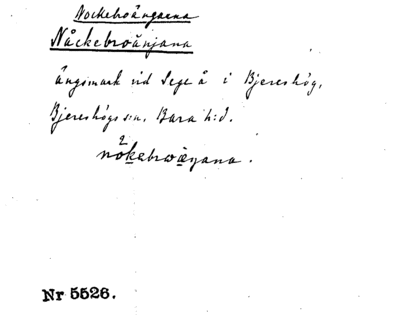 Nockebroängarna
Nåckebroänjana
ängsmark vid Sege å i Bjereshög,
Bjereshögs sn, Bara h:d.
2
nåkebroæŋana.
Nr 5526.